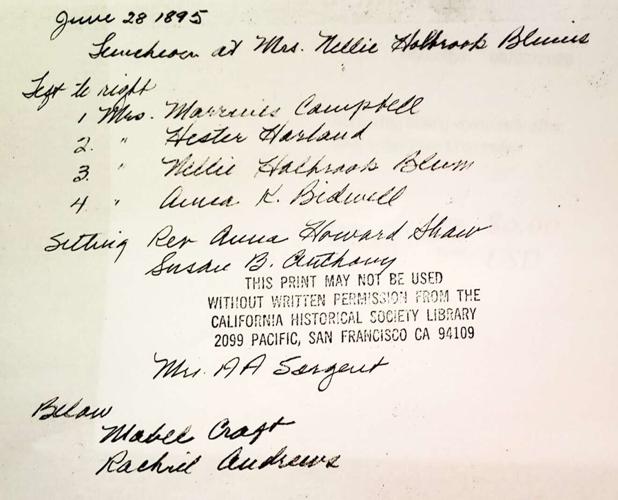 June 28 1895
Luncheon at Mrs. Nellie Holbrook Blums
Left to right
1 Mrs. Campbell
2. " Hester Harland
3. " Nellie Holbrook Blum
4 " Anna K. Bidwell
Sitting Rev Anna Howard Shaw
Susan B. Anthony
THIS PRINT MAY NOT BE USED
WITHOUT WRITTEN PERMISSION FROM THE
CALIFORNIA HISTORICAL SOCIETY LIBRARY
2099 PACIFIC, SAN FRANCISCO CA 94109
Mrs. AA Sargent
Below
Mabel Craft
Rachel Andrews